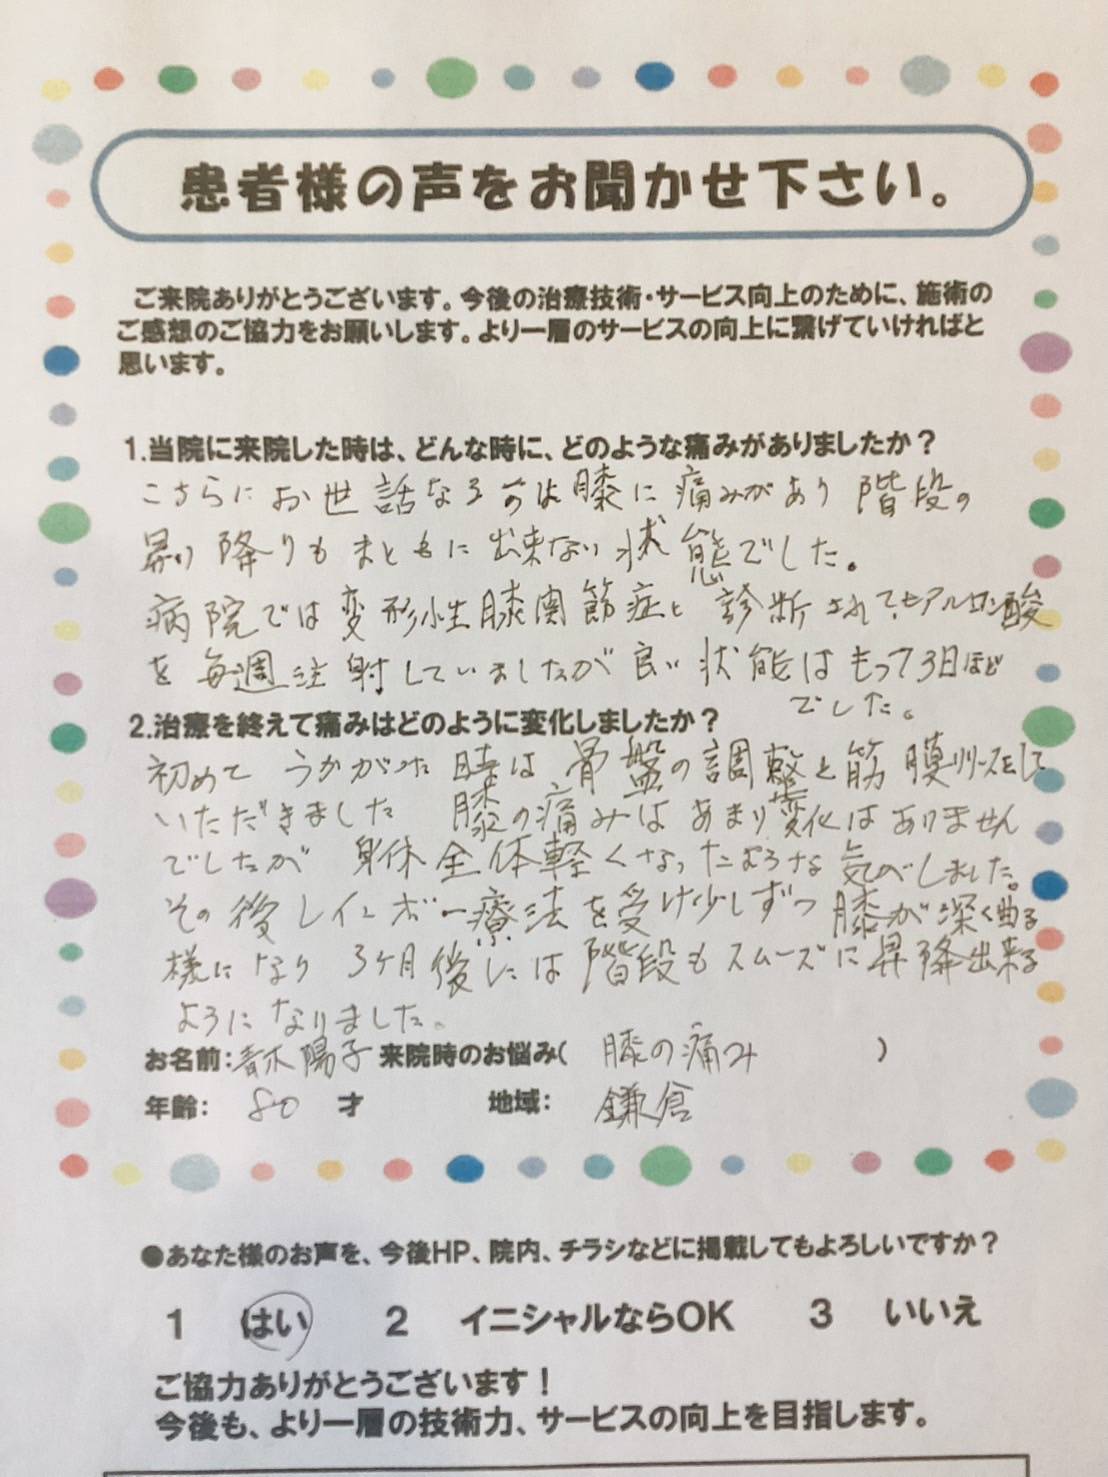 患者様の声をお聞かせ下さい。
ご来院ありがとうございます。今後の治療技術・サービス向上のために、施術の
ご感想のご協力をお願いします。より一層のサービスの向上に繋げていければと
思います。
1.当院に来院した時は、どんな時に、どのような痛みがありましたか？
こちらにお世話なるのは膝に痛みがあり階段の
昇り降りもまともに出来ない状態でした。
病院では変形性膝関節症と診断されてヒアルロン酸
を毎週注射していましたが良い状態はもって3日ほど
でした。
2.治療を終えて痛みはどのように変化しましたか？
初めてうかがった時は、骨盤の調整と筋膜リリースをして
いただきました 膝の痛みはあまり変化はありません
でしたが 身体全体軽くなったような気がしました。
その後レインボー療法を受け少しずつ膝が深く曲る
様になり 3ヶ月後には階段もスムーズに昇降出来る
ようになりました。
お名前：青木陽子 来院時のお悩み（ 膝の痛み ）
年齢： 80 才 地域： 鎌倉
●あなた様のお声を、今後HP、院内、チラシなどに掲載してもよろしいですか？
1 はい 2 イニシャルならOK 3 いいえ
ご協力ありがとうございます！
今後も、より一層の技術力、サービスの向上を目指します。